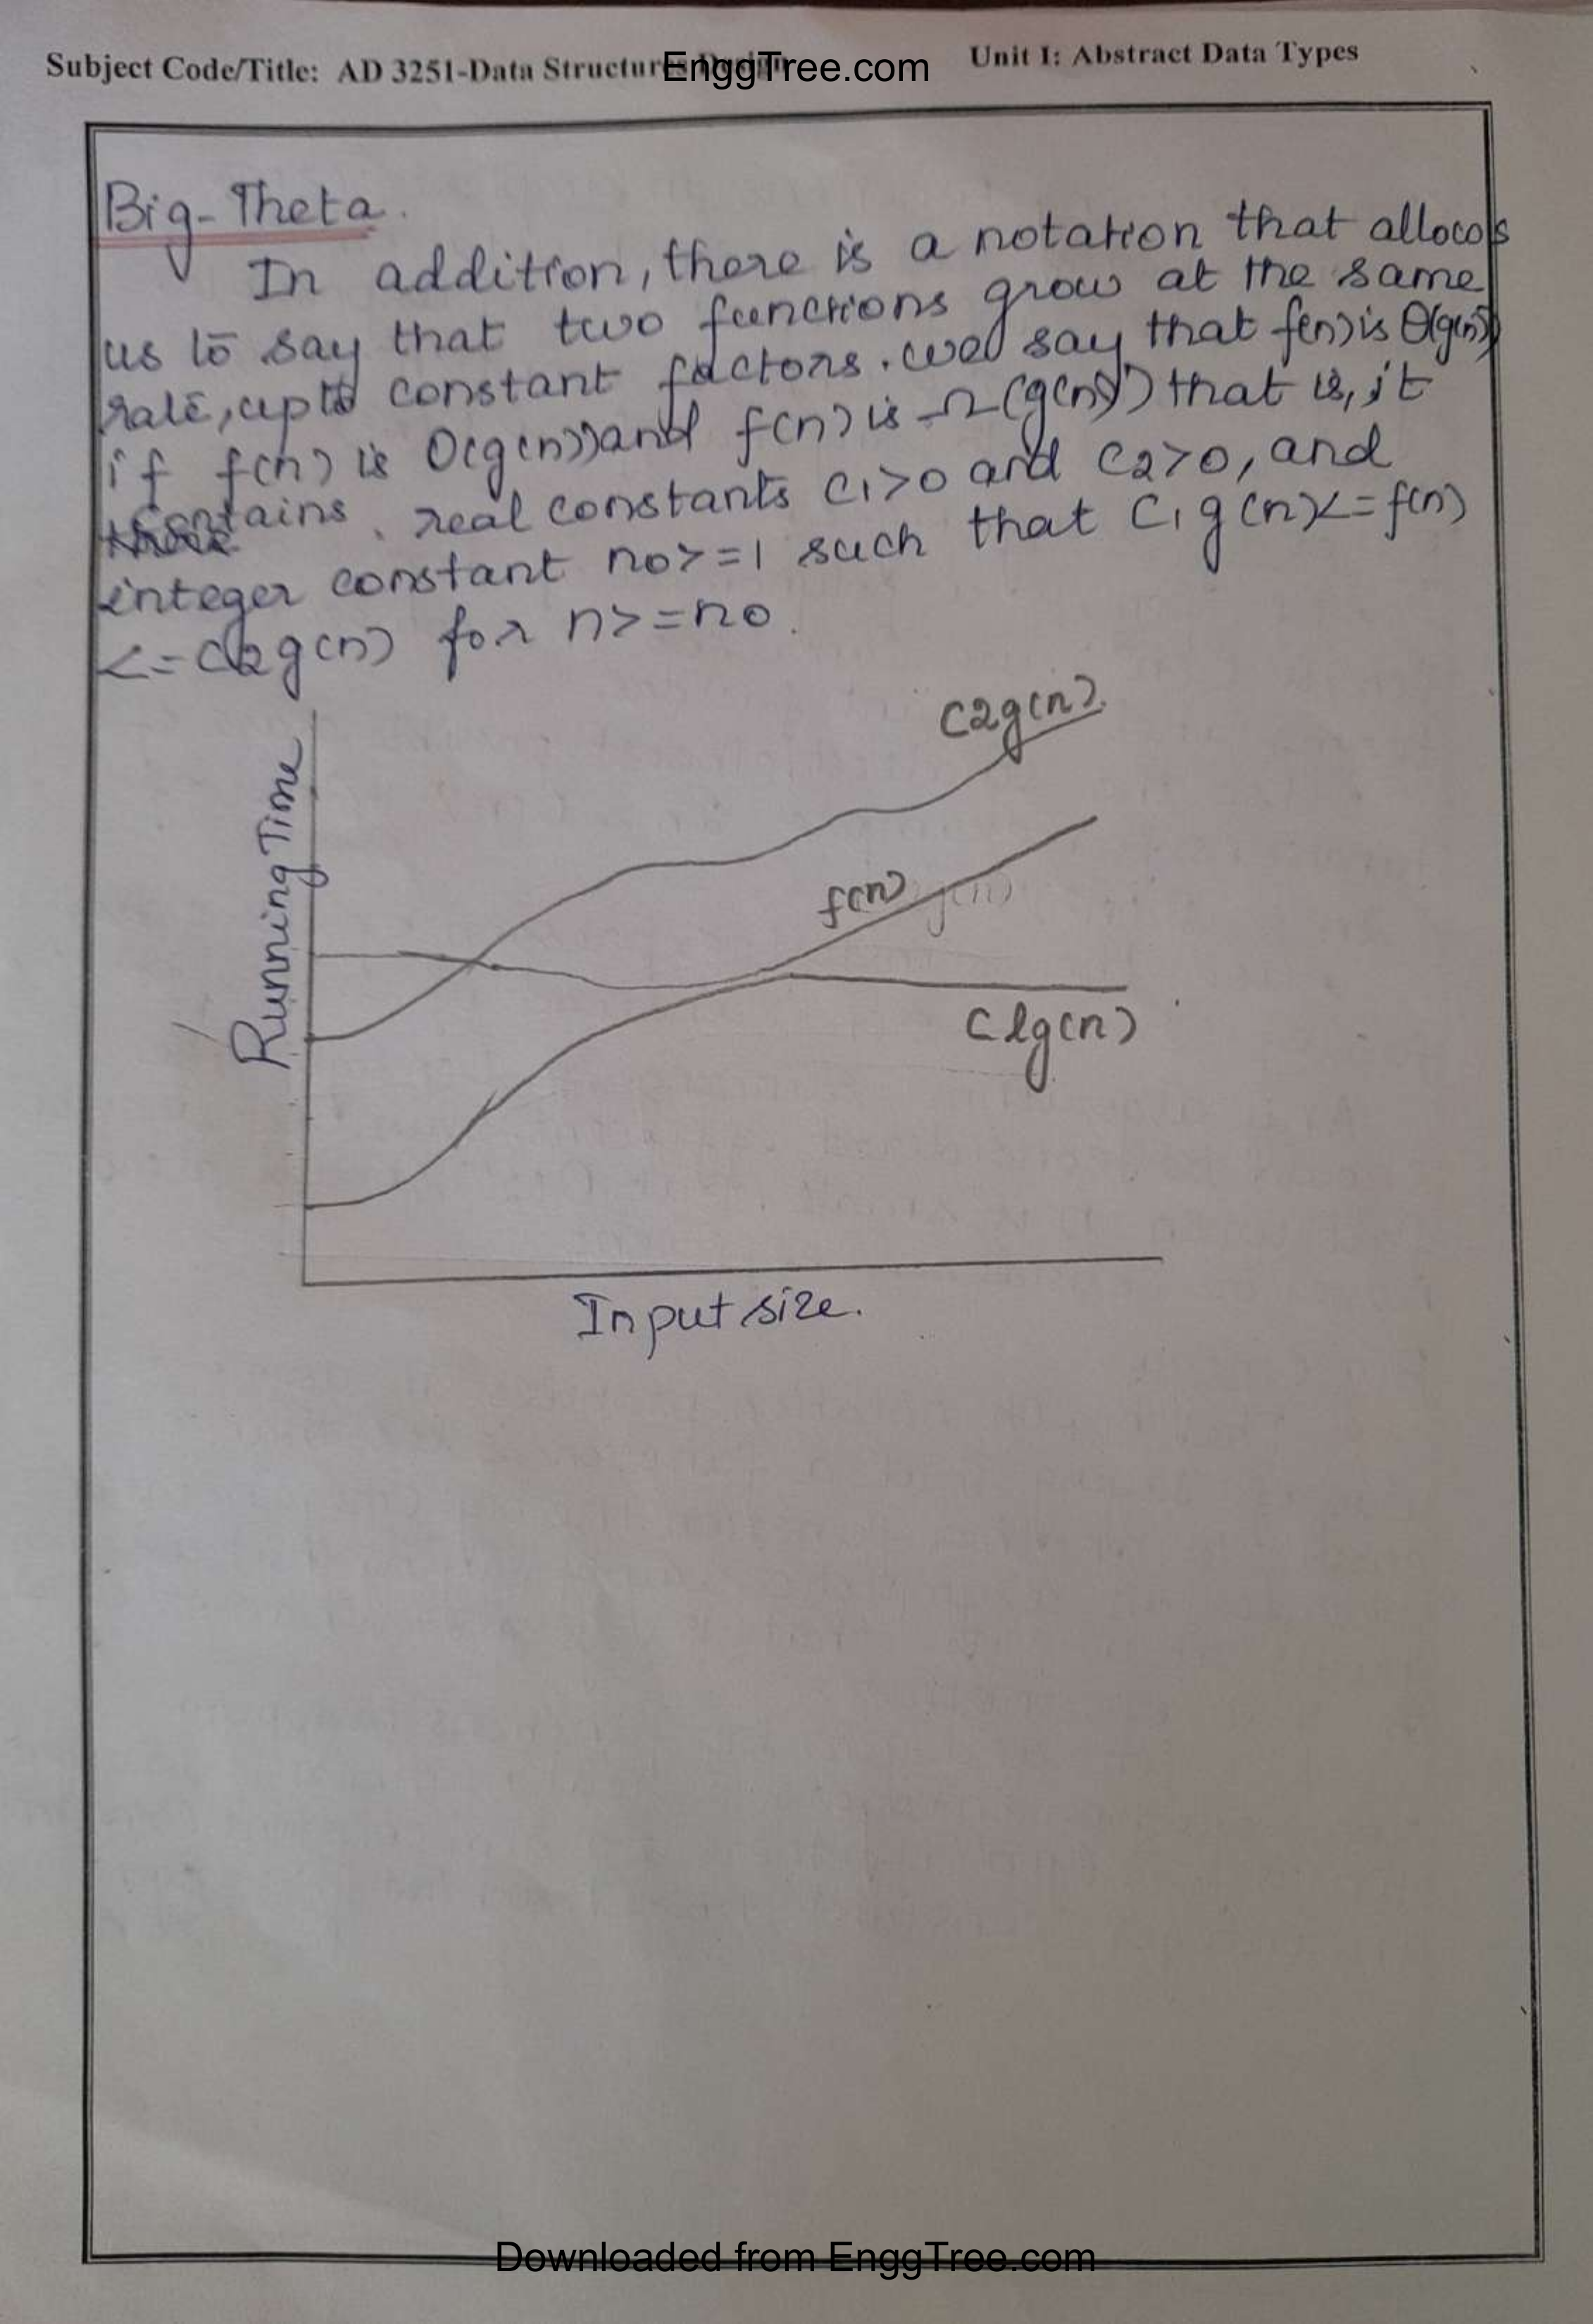 Subject Code/Title: AD 3251-Data Structures Design
EnggTree.com
Unit I: Abstract Data Types
Big-Theta.
In addition, there is a notation that allows
us to say that two functions grow at the same
rate, upto constant factors. we say that f(n) is Θ(g(n))
if f(n) is O(g(n)) and f(n) is Ω(g(n)) that is, it
contains real constants C1>0 and C2>0, and
integer constant n0>=1 such that C1 g(n)<=f(n)
<=C2g(n) for n>=n0.
C2g(n).
Running Time
f(n)
C1g(n)
Input size.
Downloaded from EnggTree.com